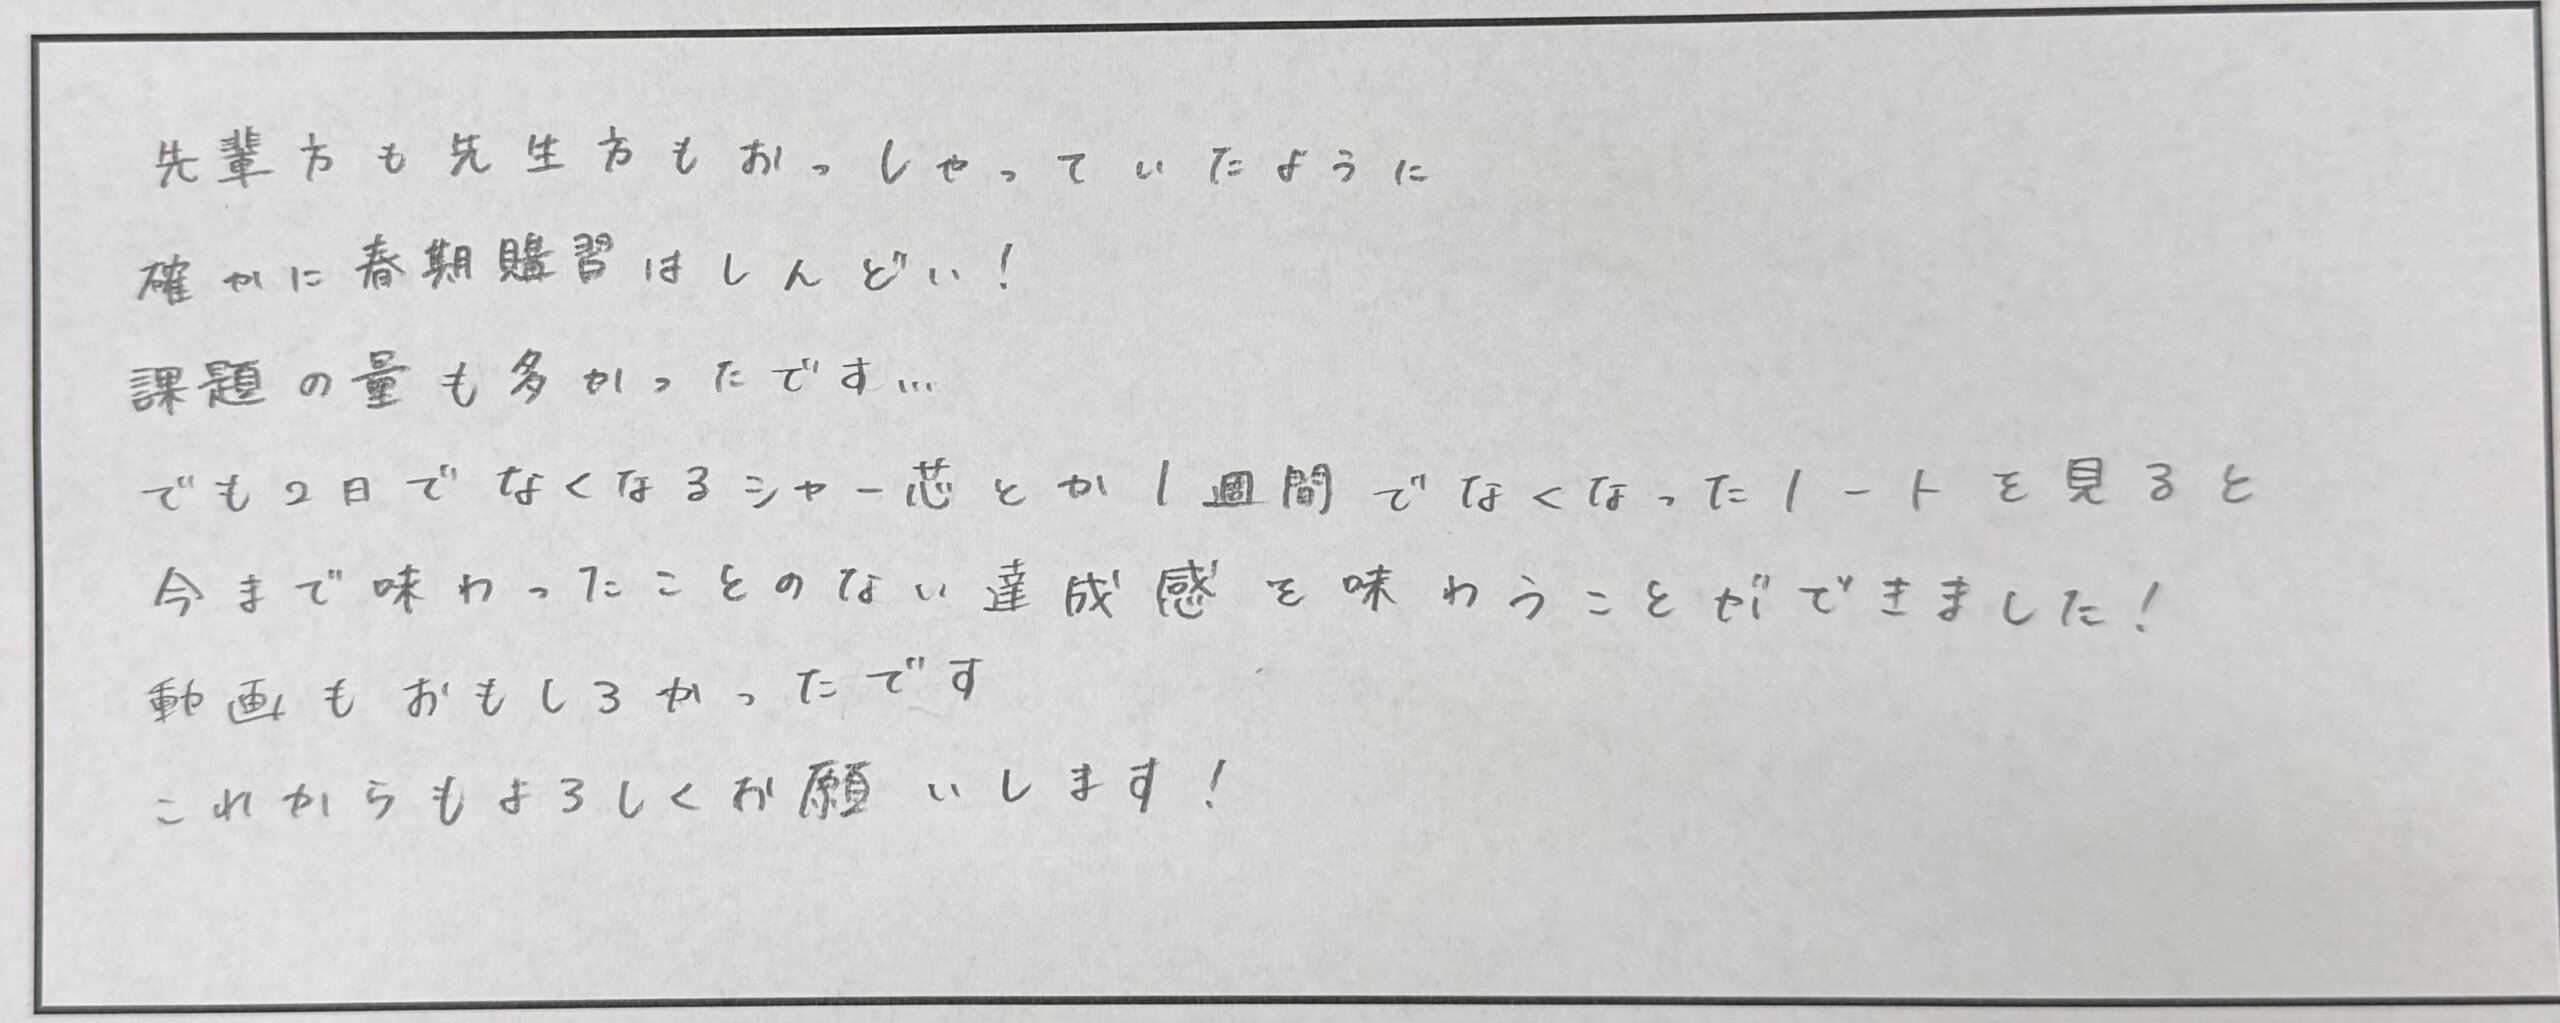 先輩方も先生方もおっしゃっていたように
確かに春期購習はしんどい!
課題の量も多かったです…
でも2日でなくなるシャー芯とか1週間でなくなったノートを見ると
今まで味わったことのない達成感を味わうことができました!
動画もおもしろかったです
これからもよろしくお願いします!